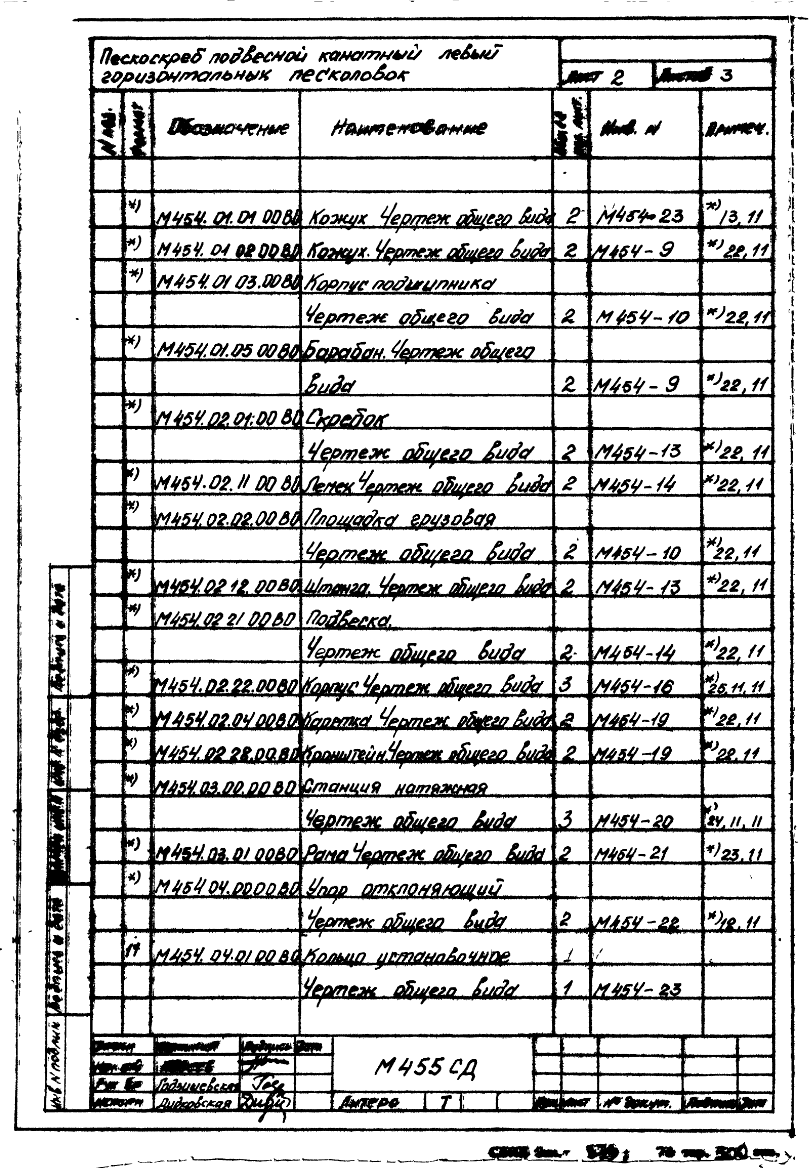 Пескоскреб подвесной канатный левый
горизонтальных песколовок
Лист 2 Листов 3
Формат Обозначение Наименование Примеч.
*) М454.01.01 00 В0 Кожух Чертеж общего вида 2 М454-23 *) 13,11
*) М454.01 02 00 В0 Кожух. Чертеж общего вида 2 М454-9 *) 22,11
*) М454.01 03.00 В0 Корпус подшипника
Чертеж общего вида 2 М454-10 *) 22,11
*) М454.01.05 00 В0 Барабан. Чертеж общего
вида 2 М454-9 *) 22,11
*) М454.02.01.00 В0 Скребок
Чертеж общего вида 2 М454-13 *) 22,11
*) М454.02.11 00 В0 Лемех Чертеж общего вида 2 М454-14 *) 22,11
*) М454.02.02.00 В0 Площадка грузовая
Чертеж общего вида 2 М454-10 *) 22,11
*) М454.02 12.00 В0 Штанга. Чертеж общего вида 2 М454-13 *) 22,11
*) М454.02 21 00 В0 Подвеска.
Чертеж общего вида 2 М454-14 *) 22,11
*) М454.02.22.00 В0 Корпус Чертеж общего вида 3 М454-16 *) 25,11,11
*) М454.02.04 00 В0 Каретка Чертеж общего вида 2 М454-19 *) 22,11
*) М454.02 28.00.В0 Кронштейн. Чертеж общего вида 2 М454-19 *) 22,11
*) М454.03.00.00 В0 Станция натяжная
Чертеж общего вида 3 М454-20 *) 24,11,11
*) М454.03.01 00 В0 Рама Чертеж общего вида 2 М454-21 *) 23,11
*) М454 04.00 00 В0 Упор отклоняющий
Чертеж общего вида 2 М454-22 *) 12,11
11 М454.04.01 00 В0 Кольцо установочное 1
Чертеж общего вида 1 М454-23
Подпись Дата
М455СД
Годзишевская
Дидковская
Литера Т
№ докум.
Подпись и дата
Подпись и дата
Инв. N подлин